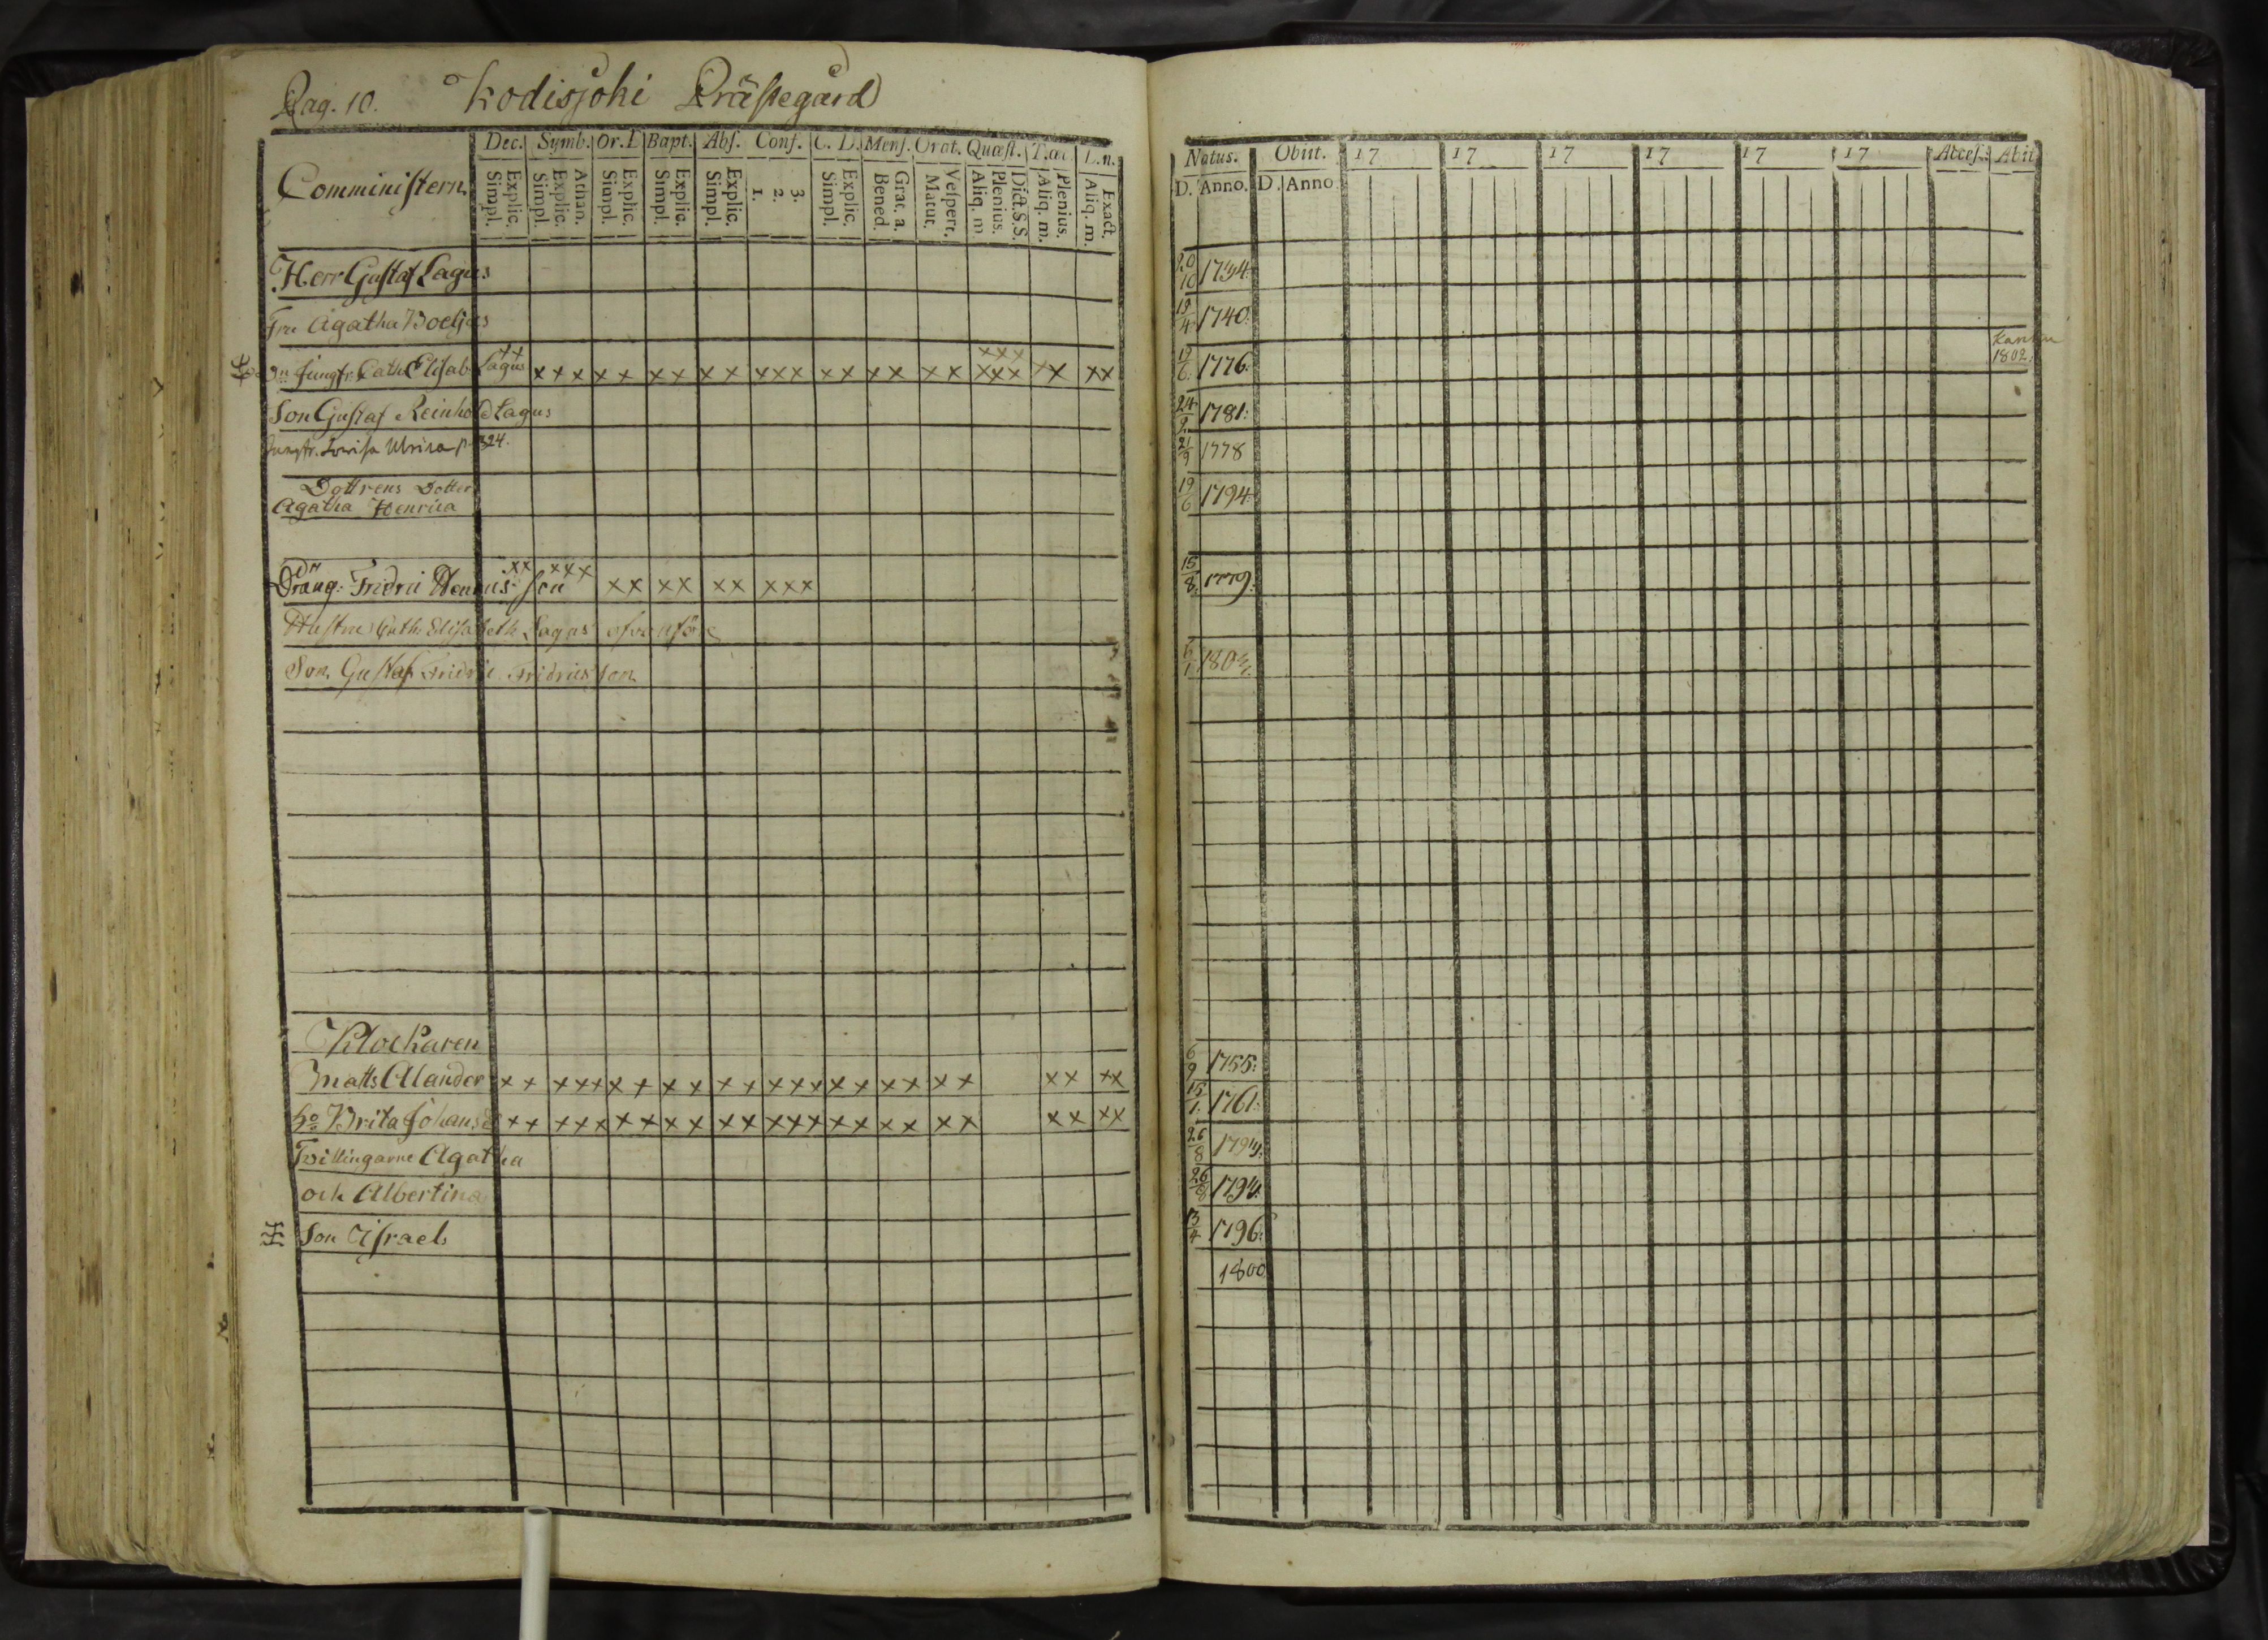 Pag. 10. Kodisjoki Prästegård
Dec. Symb. Or. D Bapt. Abs. Conf. C. D. Mens. Orat. Quæst. T. œc L. n.
Comministern
Explic. Simpl. Athan. Explic. Simpl. Explic. Simpl. Explic. Simpl. Explic. Simpl. 3. 2. 1. Explic. Simpl. Grat. a. Bened. Vespert. Matut. Dict. S. S. Plenius. Aliq. m. Plenius. Aliq. m. Exact. Aliq. m.
Natus. Obiit. 17 17 17 17 17 17 Acces. Abiit
D. Anno. D. Anno
Herr Gustaf Lagus 20/10 1734
Fru Agatha Boelius 1740.
Jungfr. Cath. Elisab. Lagus x x x x x x x x x x x x x x x x x x x x x x x x x x x x x 1776. 1802.
Son Gustaf Reinhold Lagus 24/2 1781.
Jungfr. Lovisa Ulrica p. 324. 21/9 1778
Dottrens Dotter
Agatha Henrica 19/6 1794.
Dräng. Fridric Henricsson x x x x x x x x x x x x x x 15/8 1779.
Hustru Cath. Elisabeth Lagus ofvanföre
Son, Gustaf Fridric Fridricsson
Klockaren
Matts Alander x x x x x x x x x x x x x x x x x x x x x x x x 6/9 1755.
ho Brita Johansd x x x x x x x x x x x x x x x x x x x x x x x x 15/1 1761.
Tvillingarne Agatha 26/8
och Albertina 26/8
Son Israel 13/4 1796.
1800